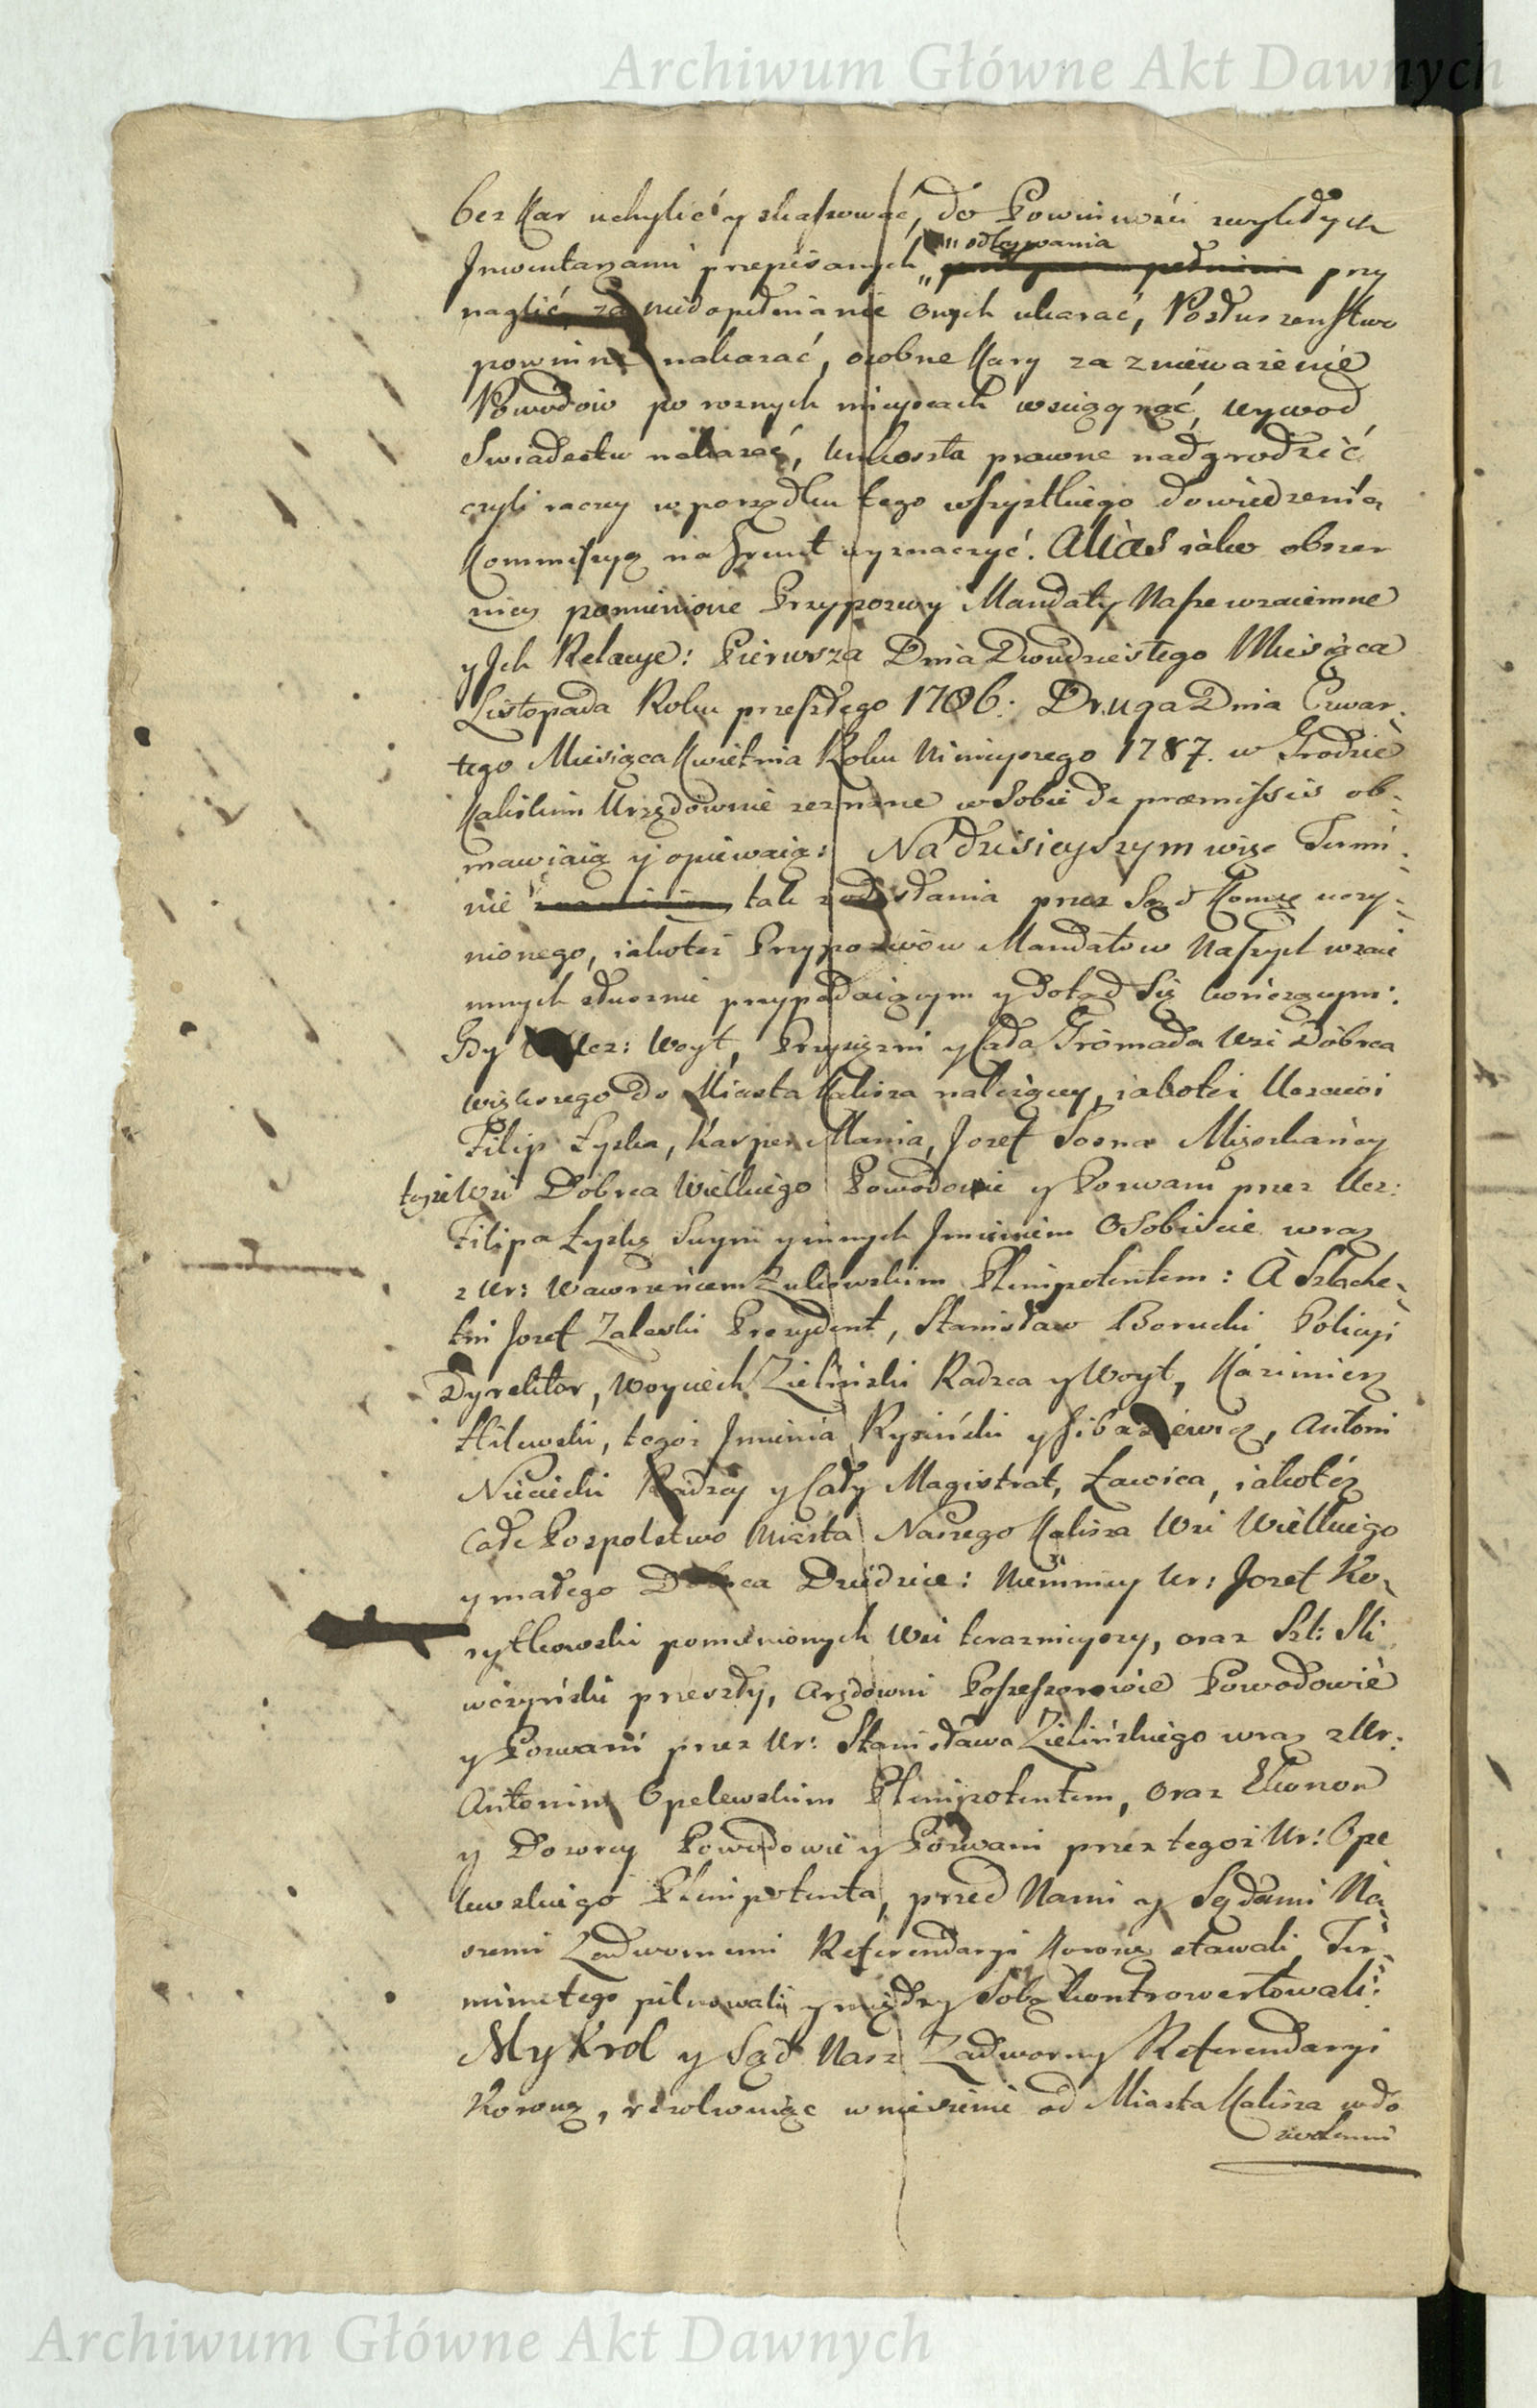 Archiwum Główne Akt Dawnych
bez Kar uchylić y skassować, do Powinności zwykłych
Jnwentarzami przepisanych „ „odbywania przy
naglić, za niedopełnianie onych ukarać, Posłuszenstwo
powinne nakazać, osobne Kary za znieważenie
Powodow po roznych mieyscach wsciągnąć, wywod
Swiadectw nakazać, Unkoszta prawne nadgrodzić
czyli raczey w porządku tego wszystkiego dowiedzenia
Kommissyą na Grunt wyznaczyć. Alias iako obszer
niey pomienione Przypozwy Mandaty Nasze wzaiemne
y Jch Relacye: Pierwsza Dnia Dwudziestego Miesiąca
Listopada Roku przeszłego 1786: Druga Dnia Czwar-
tego Miesiąca Kwietnia Roku Ninieyszego 1787. w Grodzie
Kaliskim Urzędownie zeznane w Sobie de præmissis ob-
mawiaią y opiewaią: Na dzisieyszym więc Termi-
nie tak z odesłania przez Sąd Komży uczy-
nionego, iakoteż Przypozwow Mandatow Naszych wzaie
mnych słusznie przypadaiącym y dotąd Się kończącym:
Gdy Ucz: Woyt, Przysiężni y Cała Gromada Wsi Dobrca
większego do Miasta Kalisza należącey, iakoteż Uczciwi
Filip Łyska, Karper Mania, Jozef Sosna Mięszkańcy
teyże Wsi Dobrca Wielkiego Powodowie y Pozwani przez Ucz:
Filipa Łyskę Swym y innych Jmieniem Osobiscie wraz
z Ur: Wawrzeńcem Zulkowskim Plenipotentem: A Szlache-
tni Jozef Zaleski Prezydent, Stanisław Borucki Policyi
Dyrektor, Woyciech Zieliński Radzca y Woyt, Kazimierz
Hilewski, tegoż Jmienia Rysiński y Antoni
Niwiecki Radzcy y Cały Magistrat, Ławica, iakoteż
Całe Pospolstwo Miasta Naszego Kalisza Wsi Wielkiego
y małego Dobrca Dziedzice: Niemniey Ur: Jozef Ko-
rytkowski pomienionych Wsi terazniejszy, oraz Szl: Sli
wczyński przeszły, Arędowni Possessorowie Powodowie
y Pozwani przez Ur: Stanisława Zielińskiego wraz z Ur:
Antonim Opelewskim Plenipotentem, oraz Ekonom
y Dozorcy Powodowie y Pozwani przez tegoż Ur: Ope
lewskiego Plenipotenta, przed Nami y Sądami Na-
szemi Zadwornemi Referendaryi Koronney stawali Ter-
minu tego pilnowali y między Sobą kontrowertowali:
My Krol y Sąd Nasz Zadworny Referendaryi
Koronney, rezolwuiąc wniesienie od Miasta Kalisza wdo
zwolenie
Archiwum Główne Akt Dawnych